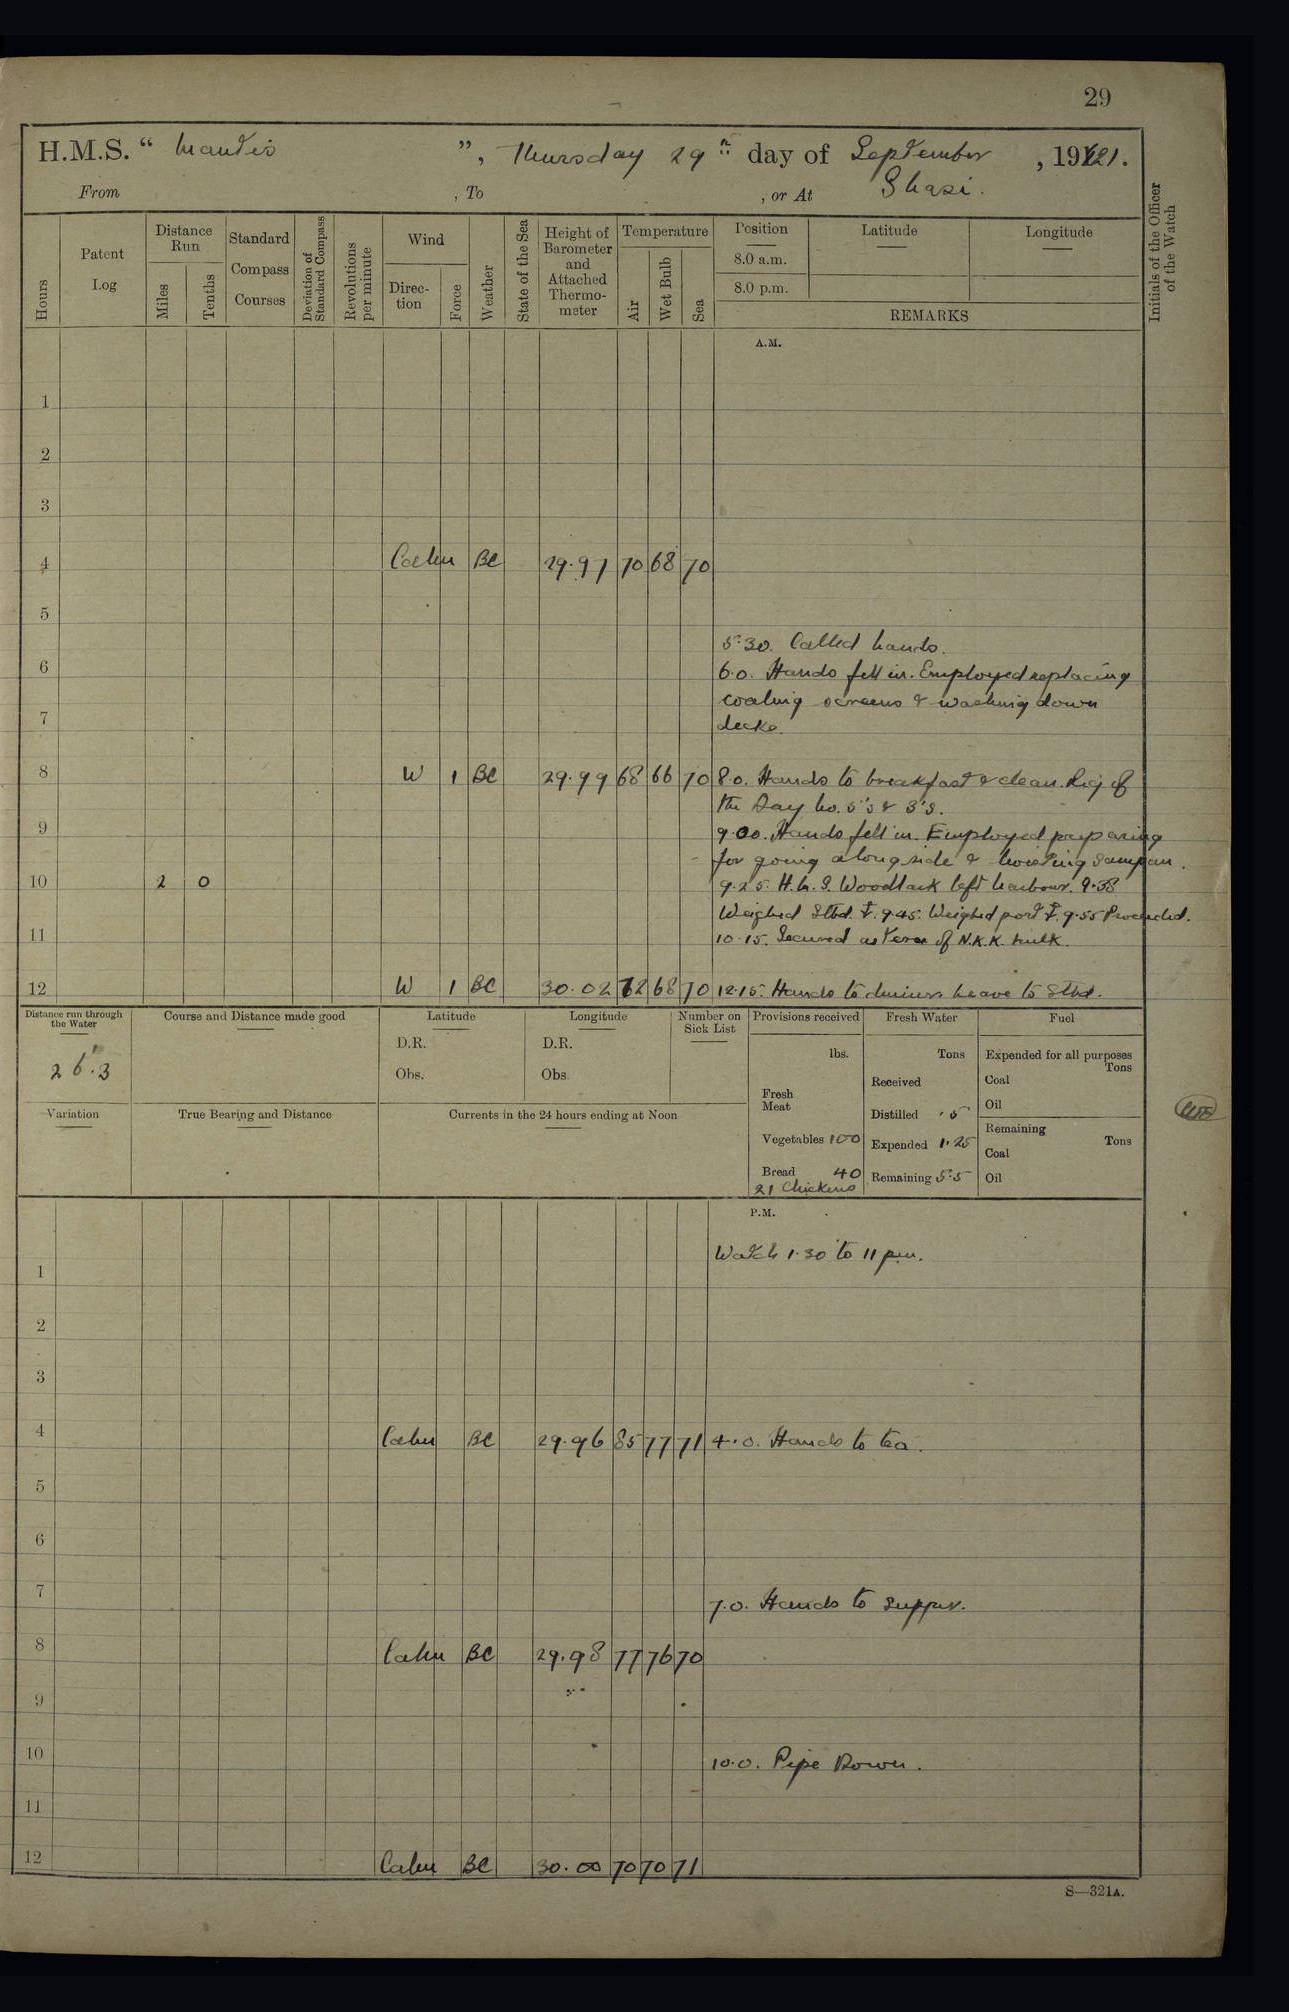 29
H.M.S. " Mantis ", Thursday 29th day of September , 1921.
From , To , or At Shasi.
Hours
Patent Log
Distance Run
Miles
Tenths
Standard Compass Courses
Deviation of Standard Compass
Revolutions per minute
Wind
Direction
Force
Weather
State of the Sea
Height of Barometer and Attached Thermometer
Temperature
Air
Wet Bulb
Sea
Position
8.0 a.m.
8.0 p.m.
Latitude
Longitude
REMARKS
Initials of the Officer of the Watch
A.M.
1
2
3
4 Calm BC 29.97 70 68 70
5
5.30. Called hands.
6 6.0. Hands fell in. Employed replacing
coaling screens & washing down
7 decks.
8 W 1 BC 29.99 68 66 70 8.0. Hands to breakfast & clean. Rig of
the Day No. 5's & 3's.
9 9.00. Hands fell in. Employed preparing
for going alongside & hoisting sampan.
10 2 0 9.25. H.M.S. Woodlark left harbour. 9.38
Weighed Stbd. ⚓. 9.45. Weighed port ⚓. 9.55 Proceeded.
11 10.15. Secured astern of N.K.K. hulk.
12 W 1 BC 30.02 72 68 70 12.15. Hands to dinner. Leave to Stbd.
Distance run through the Water
26.3
Course and Distance made good
Latitude
D.R.
Obs.
Longitude
D.R.
Obs.
Number on Sick List
Variation
True Bearing and Distance
Currents in the 24 hours ending at Noon
Provisions received
lbs.
Fresh Meat
Vegetables 100
Bread 40
21 Chickens
Fresh Water
Tons
Received
Distilled .5
Expended 1.25
Remaining 5.5
Fuel
Expended for all purposes
Tons
Coal
Oil
Remaining
Tons
Coal
Oil
P.M.
Watch 1.30 to 11 pm.
1
2
3
4 Calm BC 29.96 85 77 71 4.0. Hands to tea.
5
6
7 7.0. Hands to supper.
8 Calm BC 29.98 77 76 70
9
10 10.0. Pipe Down.
11
12 Calm BC 30.00 70 70 71
S—321A.